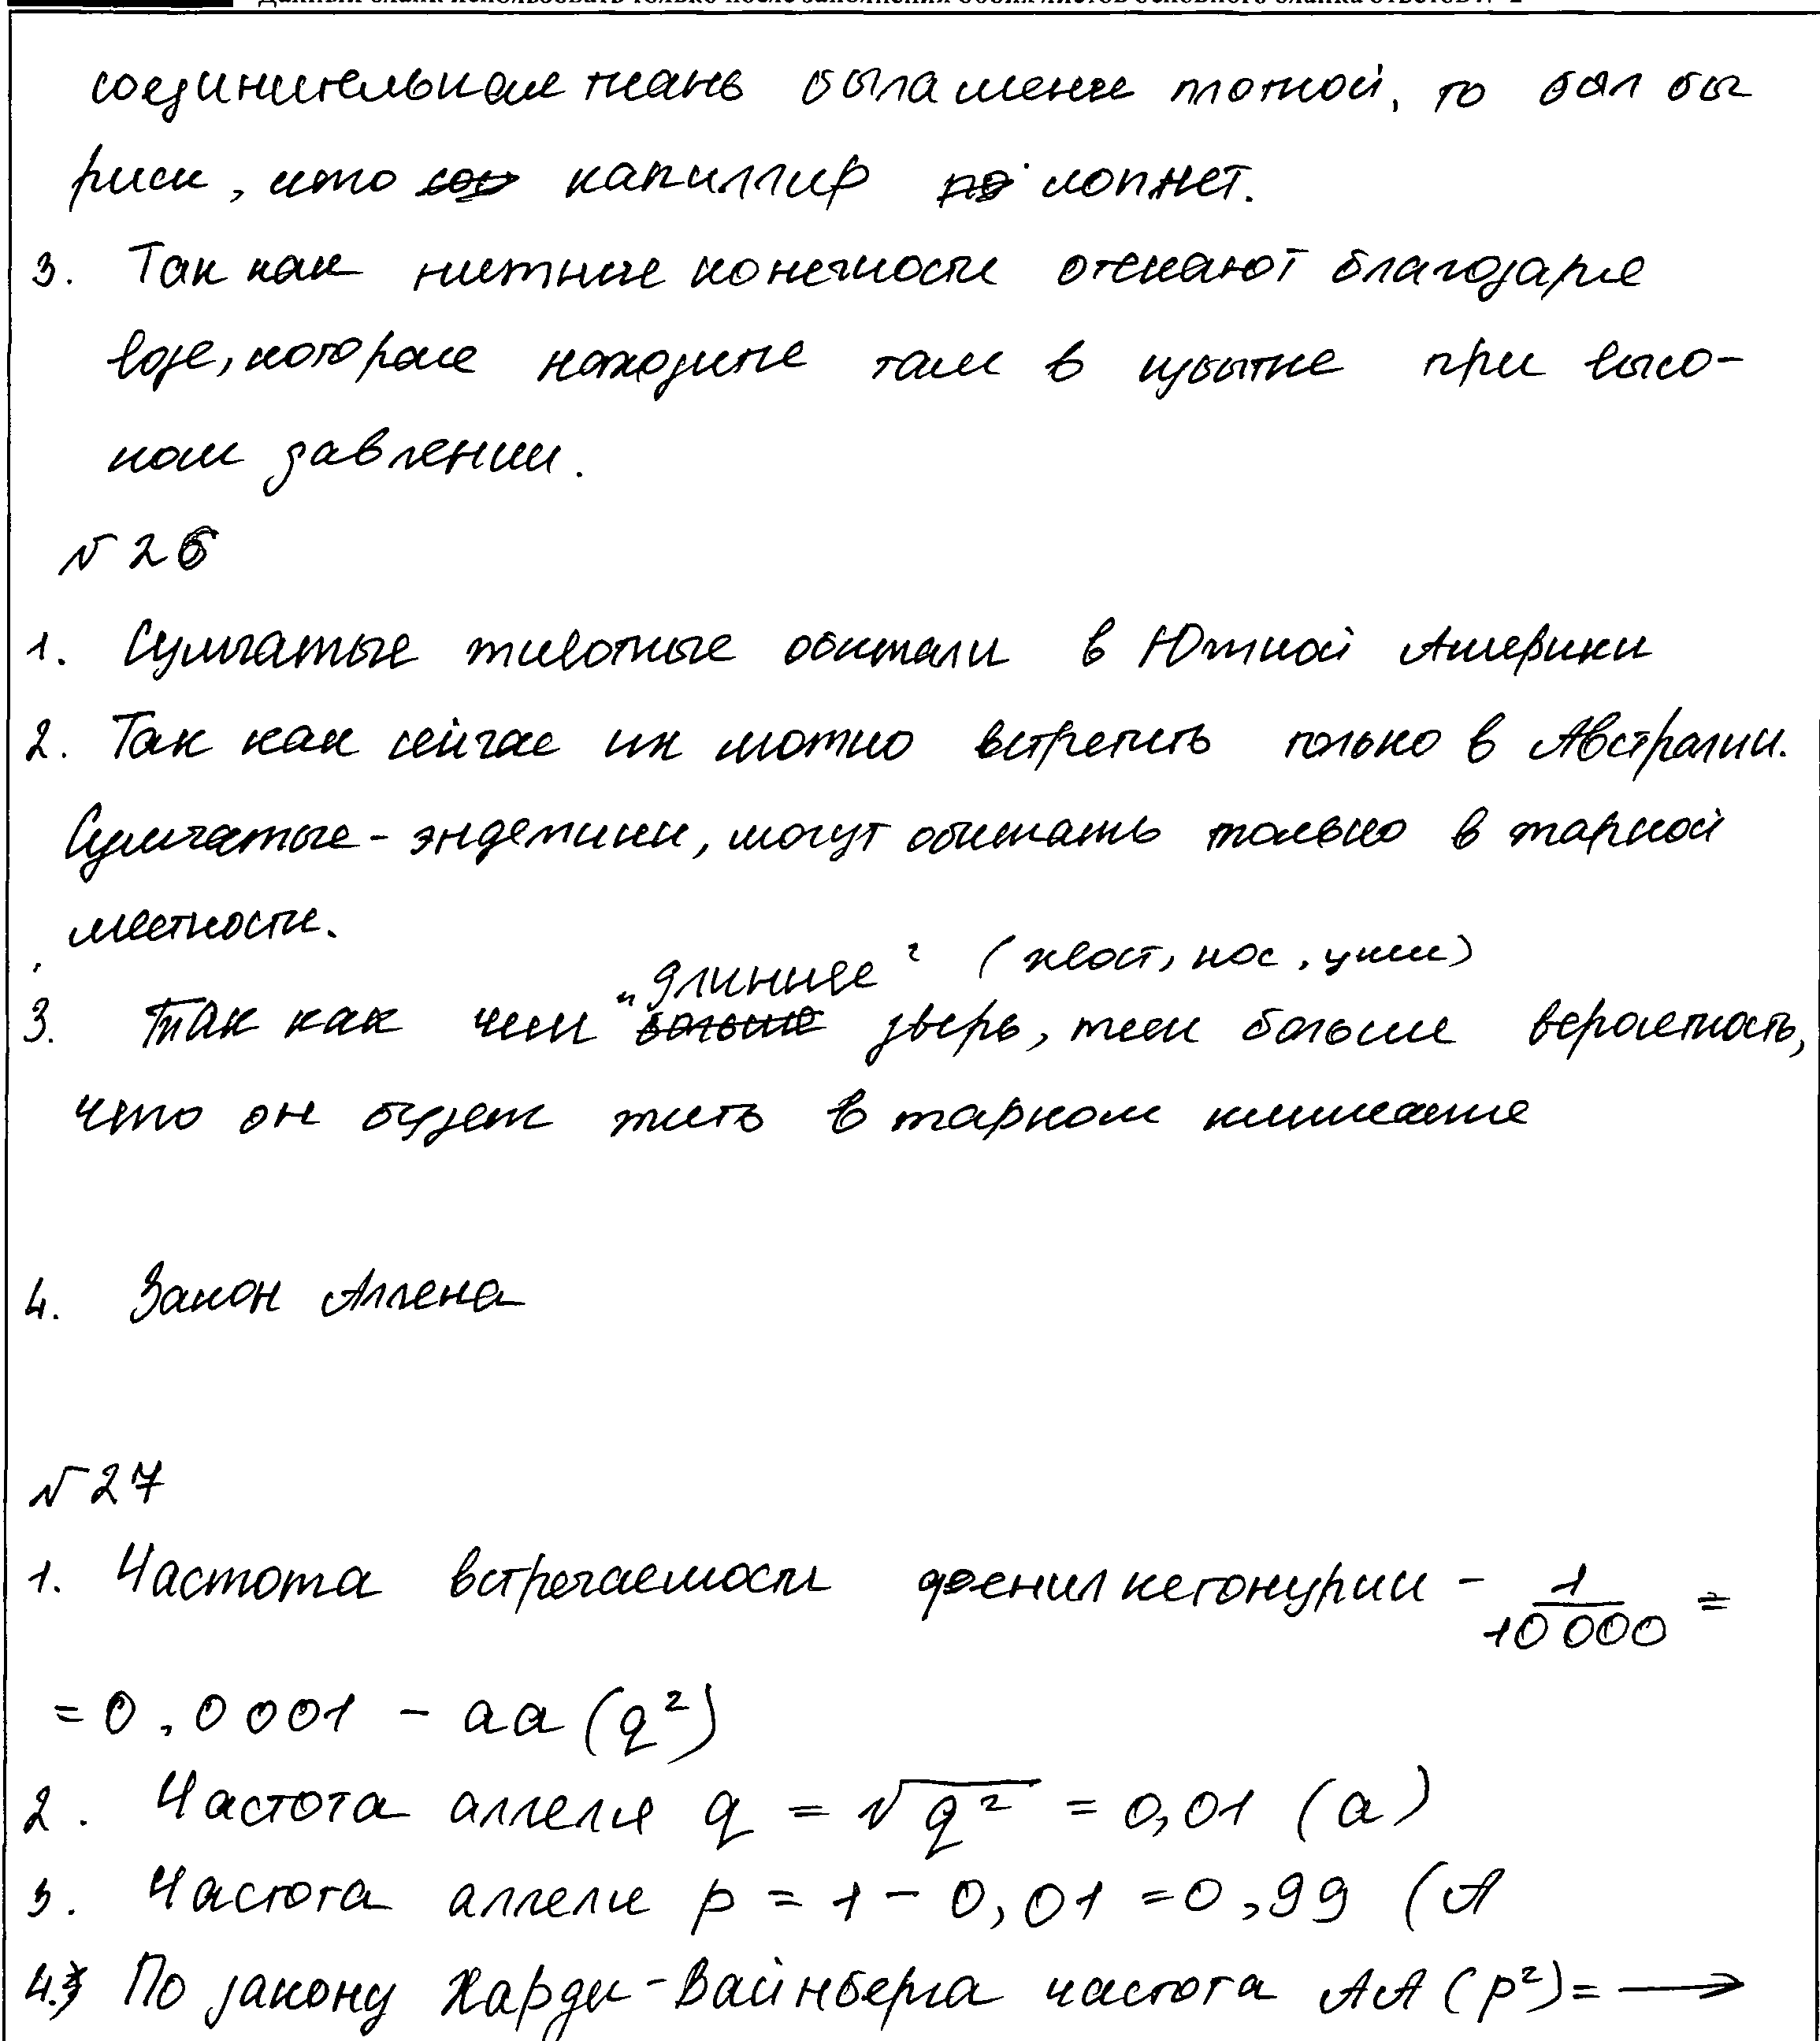 Данный бланк использовать только после заполнения обоих листов основного бланка ответов № 2
соединительная ткань была менее плотной, то был бы
риск, что капилляр лопнет.
3. Так как нижние конечности отекают благодаря
воде, которая находится там в избытке при высо-
ком давлении.
№ 26
1. Сумчатые животные обитали в Южной Америки
2. Так как сейчас их можно встретить только в Австралии.
Сумчатые - эндемики, могут обитать только в жарной
местности.
"длиннее" (хвост, нос, уши)
3. Так как чем больше зверь, тем больше вероятность,
что он будет жить в жарком климате
4. Закон Аллена
№ 27
1. Частота встречаемости фенилкетонурии - 1/10 000 =
= 0,0001 - aa (q²)
2. Частота аллеля q = √q² = 0,01 (a)
3. Частота аллели p = 1 - 0,01 = 0,99 (A
4. По закону Харди-Вайнберга частота AA (p²) = →